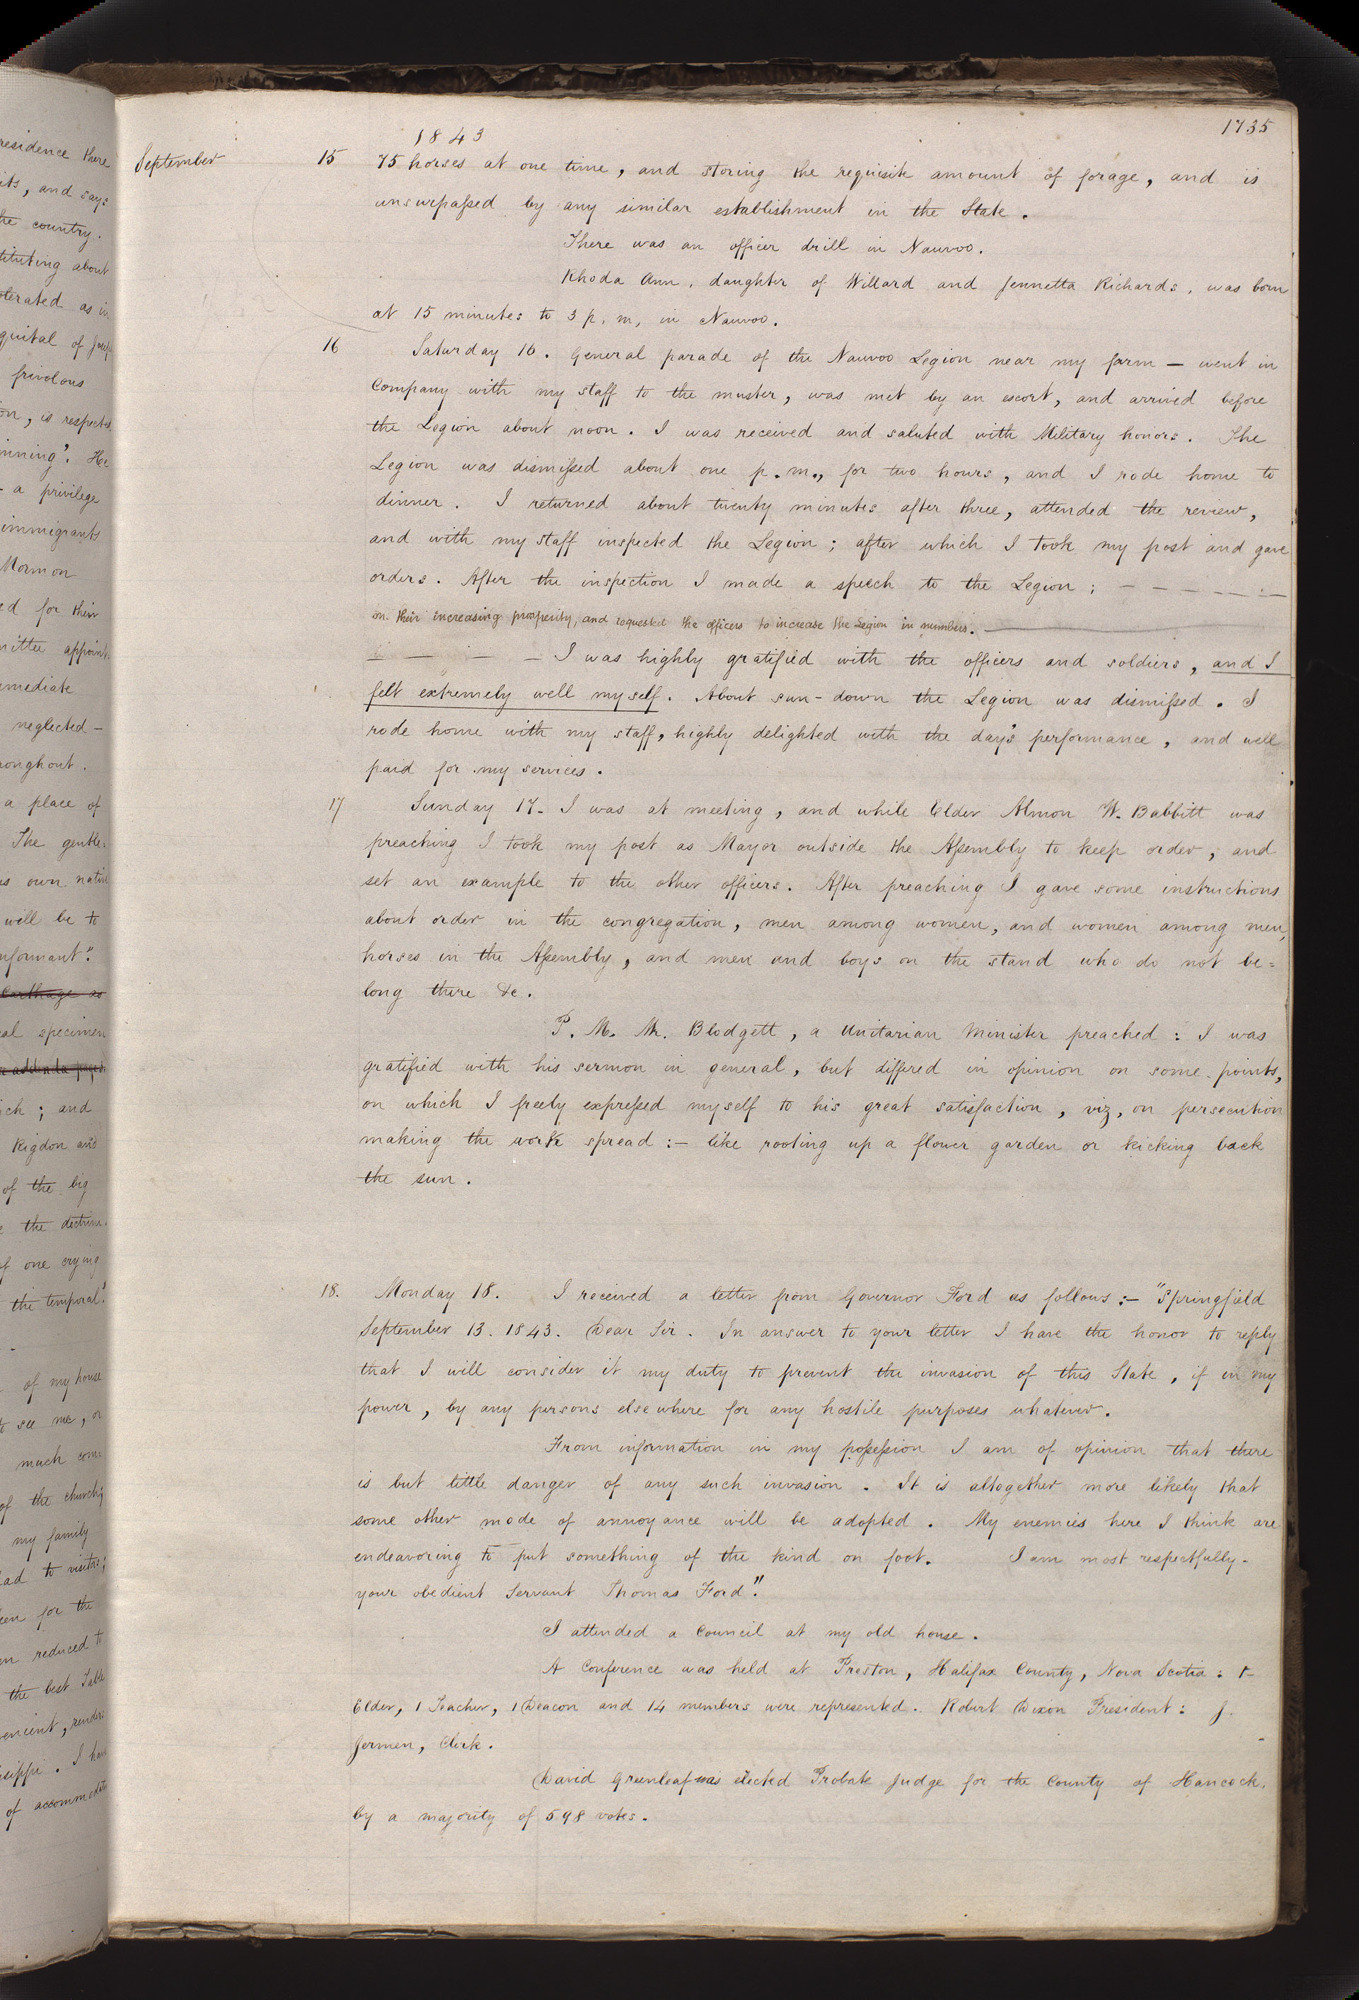 residence there
its, and says
the country.
tituting about
oterated as in
quital of
frivolous
on, is respected
inning". He
- a privilege
immigrants
Mormon
ed for their
mittee appoint
emediate
neglected -
roughout.
a place of
The gentle:
is own native
will be to
nformant".
Carthage as
al specimen
ch; and
Rigdon and
of the big
the doctrine
of one crying
the temporal."
of my house
to see me, or
much com:
of the church;
my family
ad to visitors;
een for the
en reduced to
the best Table
encient, render
issippi. I have
of accommodat
1843
1735
September 15 75 horses at one time, and storing the requisite amount of forage, and is
unsurpassed by any similar establishment in the State.
There was an officer drill in Nauvoo.
Rhoda Ann, daughter of Willard and Jennetta Richards, was born
at 15 minutes to 3 p. m, in Nauvoo.
16 Saturday 16. General parade of the Nauvoo Legion near my farm — went in
Company with my staff to the muster, was met by an escort, and arrived before
the Legion about noon. I was received and saluted with Military honors. The
Legion was dismissed about one p. m., for two hours, and I rode home to
dinner. I returned about twenty minutes after three, attended the review,
and with my staff inspected the Legion; after which I took my post and gave
orders. After the inspection I made a speech to the Legion; — — — — — —
on their increasing prosperity, and requested the officers to increase the Legion in numbers. —
— — — — I was highly gratified with the officers and soldiers, and I
felt extremely well myself. About sun-down the Legion was dismissed. I
rode home with my staff, highly delighted with the day's performance, and well
paid for my services.
17 Sunday 17. I was at meeting, and while Elder Almon W. Babbitt was
preaching I took my post as Mayor outside the Assembly to keep order, and
set an example to the other officers. After preaching I gave some instructions
about order in the congregation, men among women, and women among men,
horses in the Assembly, and men and boys on the stand who do not be=
long there &c.
P. M. Mr. Blodgett, a Unitarian Minister preached: I was
gratified with his sermon in general, but differed in opinion on some points,
on which I freely expressed myself to his great satisfaction, viz, on persecution
making the work spread:— like rooting up a flower garden or kicking back
the sun.
18. Monday 18. I received a letter from Governor Ford as follows:— "Springfield
September 13. 1843. Dear Sir. In answer to your letter I have the honor to reply
that I will consider it my duty to prevent the invasion of this State, if in my
power, by any persons elsewhere for any hostile purposes whatever.
From information in my possession I am of opinion that there
is but little danger of any such invasion. It is altogether more likely that
some other mode of annoyance will be adopted. My enemies here I think are
endeavoring to put something of the kind on foot. I am most respectfully.
your obedient Servant Thomas Ford".
I attended a Council at my old house.
A Conference was held at Preston, Halifax County, Nova Scotia: 1-
Elder, 1 Teacher, 1 Deacon and 14 members were represented. Robert Dixon President: J.
Jermen, Clerk.
David Greenleaf was elected Probate Judge for the County of Hancock,
by a majority of 598 votes.